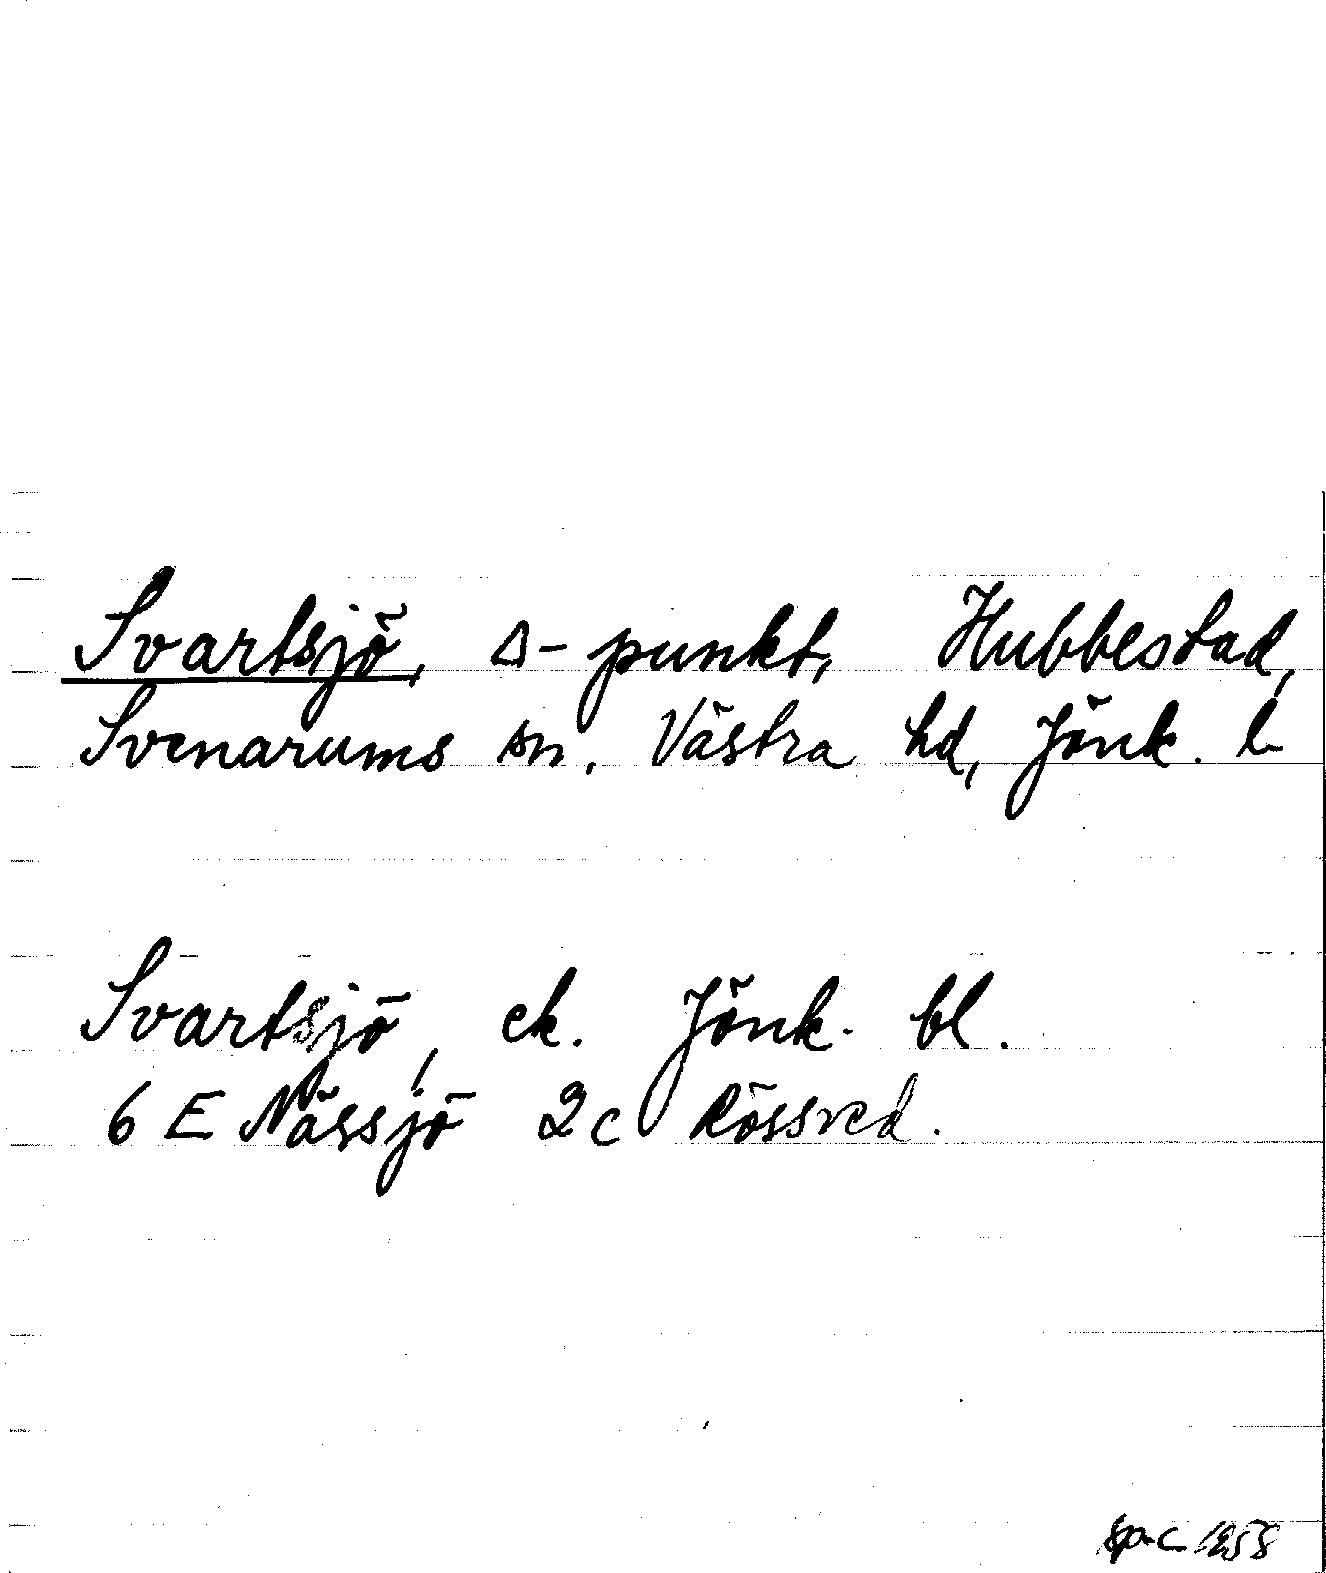 Svartsjö, Δ-punkt, Hubbestad,
Svenarums sn, Västra hd, Jönk. l
Svartsjö, ek. Jönk. bl.
6 E Nässjö 2c Rössved.
1958